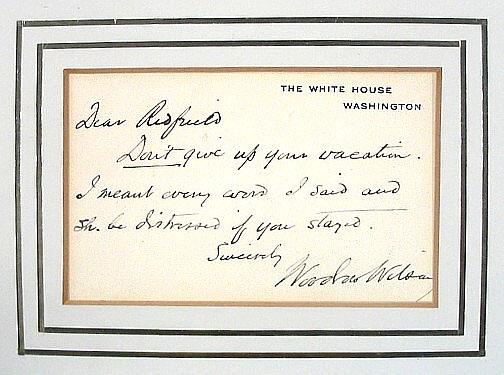 THE WHITE HOUSE
WASHINGTON
Dear Redfield
Don't give up your vacation.
I meant every word I said and
sh. be distressed if you stayed.
Sincerely
Woodrow Wilson